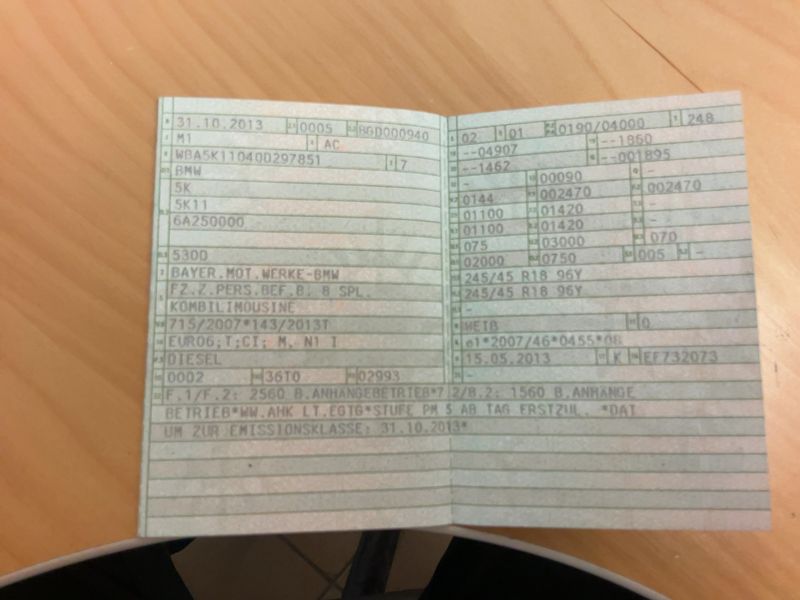 31.10.2013 0005 BGD000940
M1 AC
WBA5K110400297851 7
BMW
5K
5K11
6A250000
530D
BAYER.MOT.WERKE-BMW
FZ.Z.PERS.BEF.B. 8 SPL.
KOMBILIMOUSINE
715/2007*143/2013T
EURO6;T;CI; M, N1 I
DIESEL
0002 36T0 02993
02 01 0190/04000 248
--04907 --1860
--1462 --001895
- 00090 -
0144 002470 002470
01100 01420 -
01100 01420 -
075 03000 070
02000 0750 005 -
245/45 R18 96Y
245/45 R18 96Y
-
WEIß 0
e1*2007/46*0455*08
15.05.2013 K EF732073
-
F.1/F.2: 2560 B.ANHÄNGEBETRIEB*7.2/8.2: 1560 B.ANHÄNGE
BETRIEB*WW.AHK LT.EGTG*STUFE PM 5 AB TAG ERSTZUL. *DAT
UM ZUR EMISSIONSKLASSE: 31.10.2013*